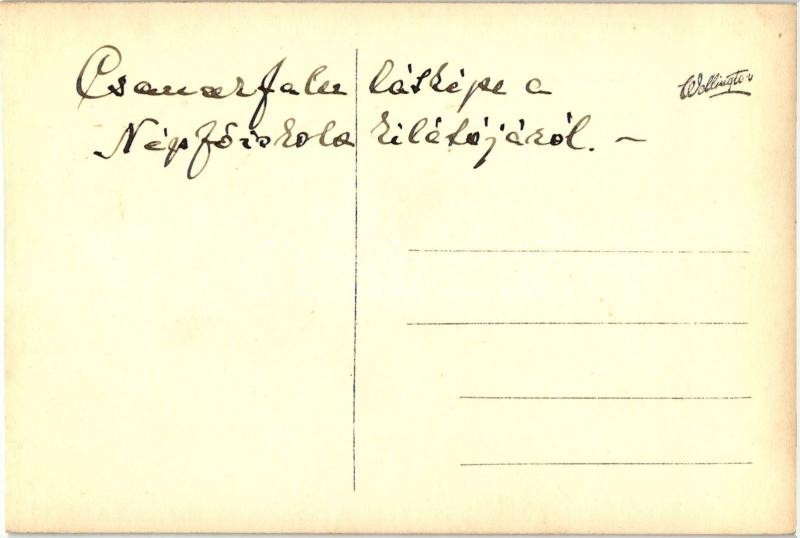 Csanarfalu látképe a
Wellington
Népfőiskola kilátójáról. –